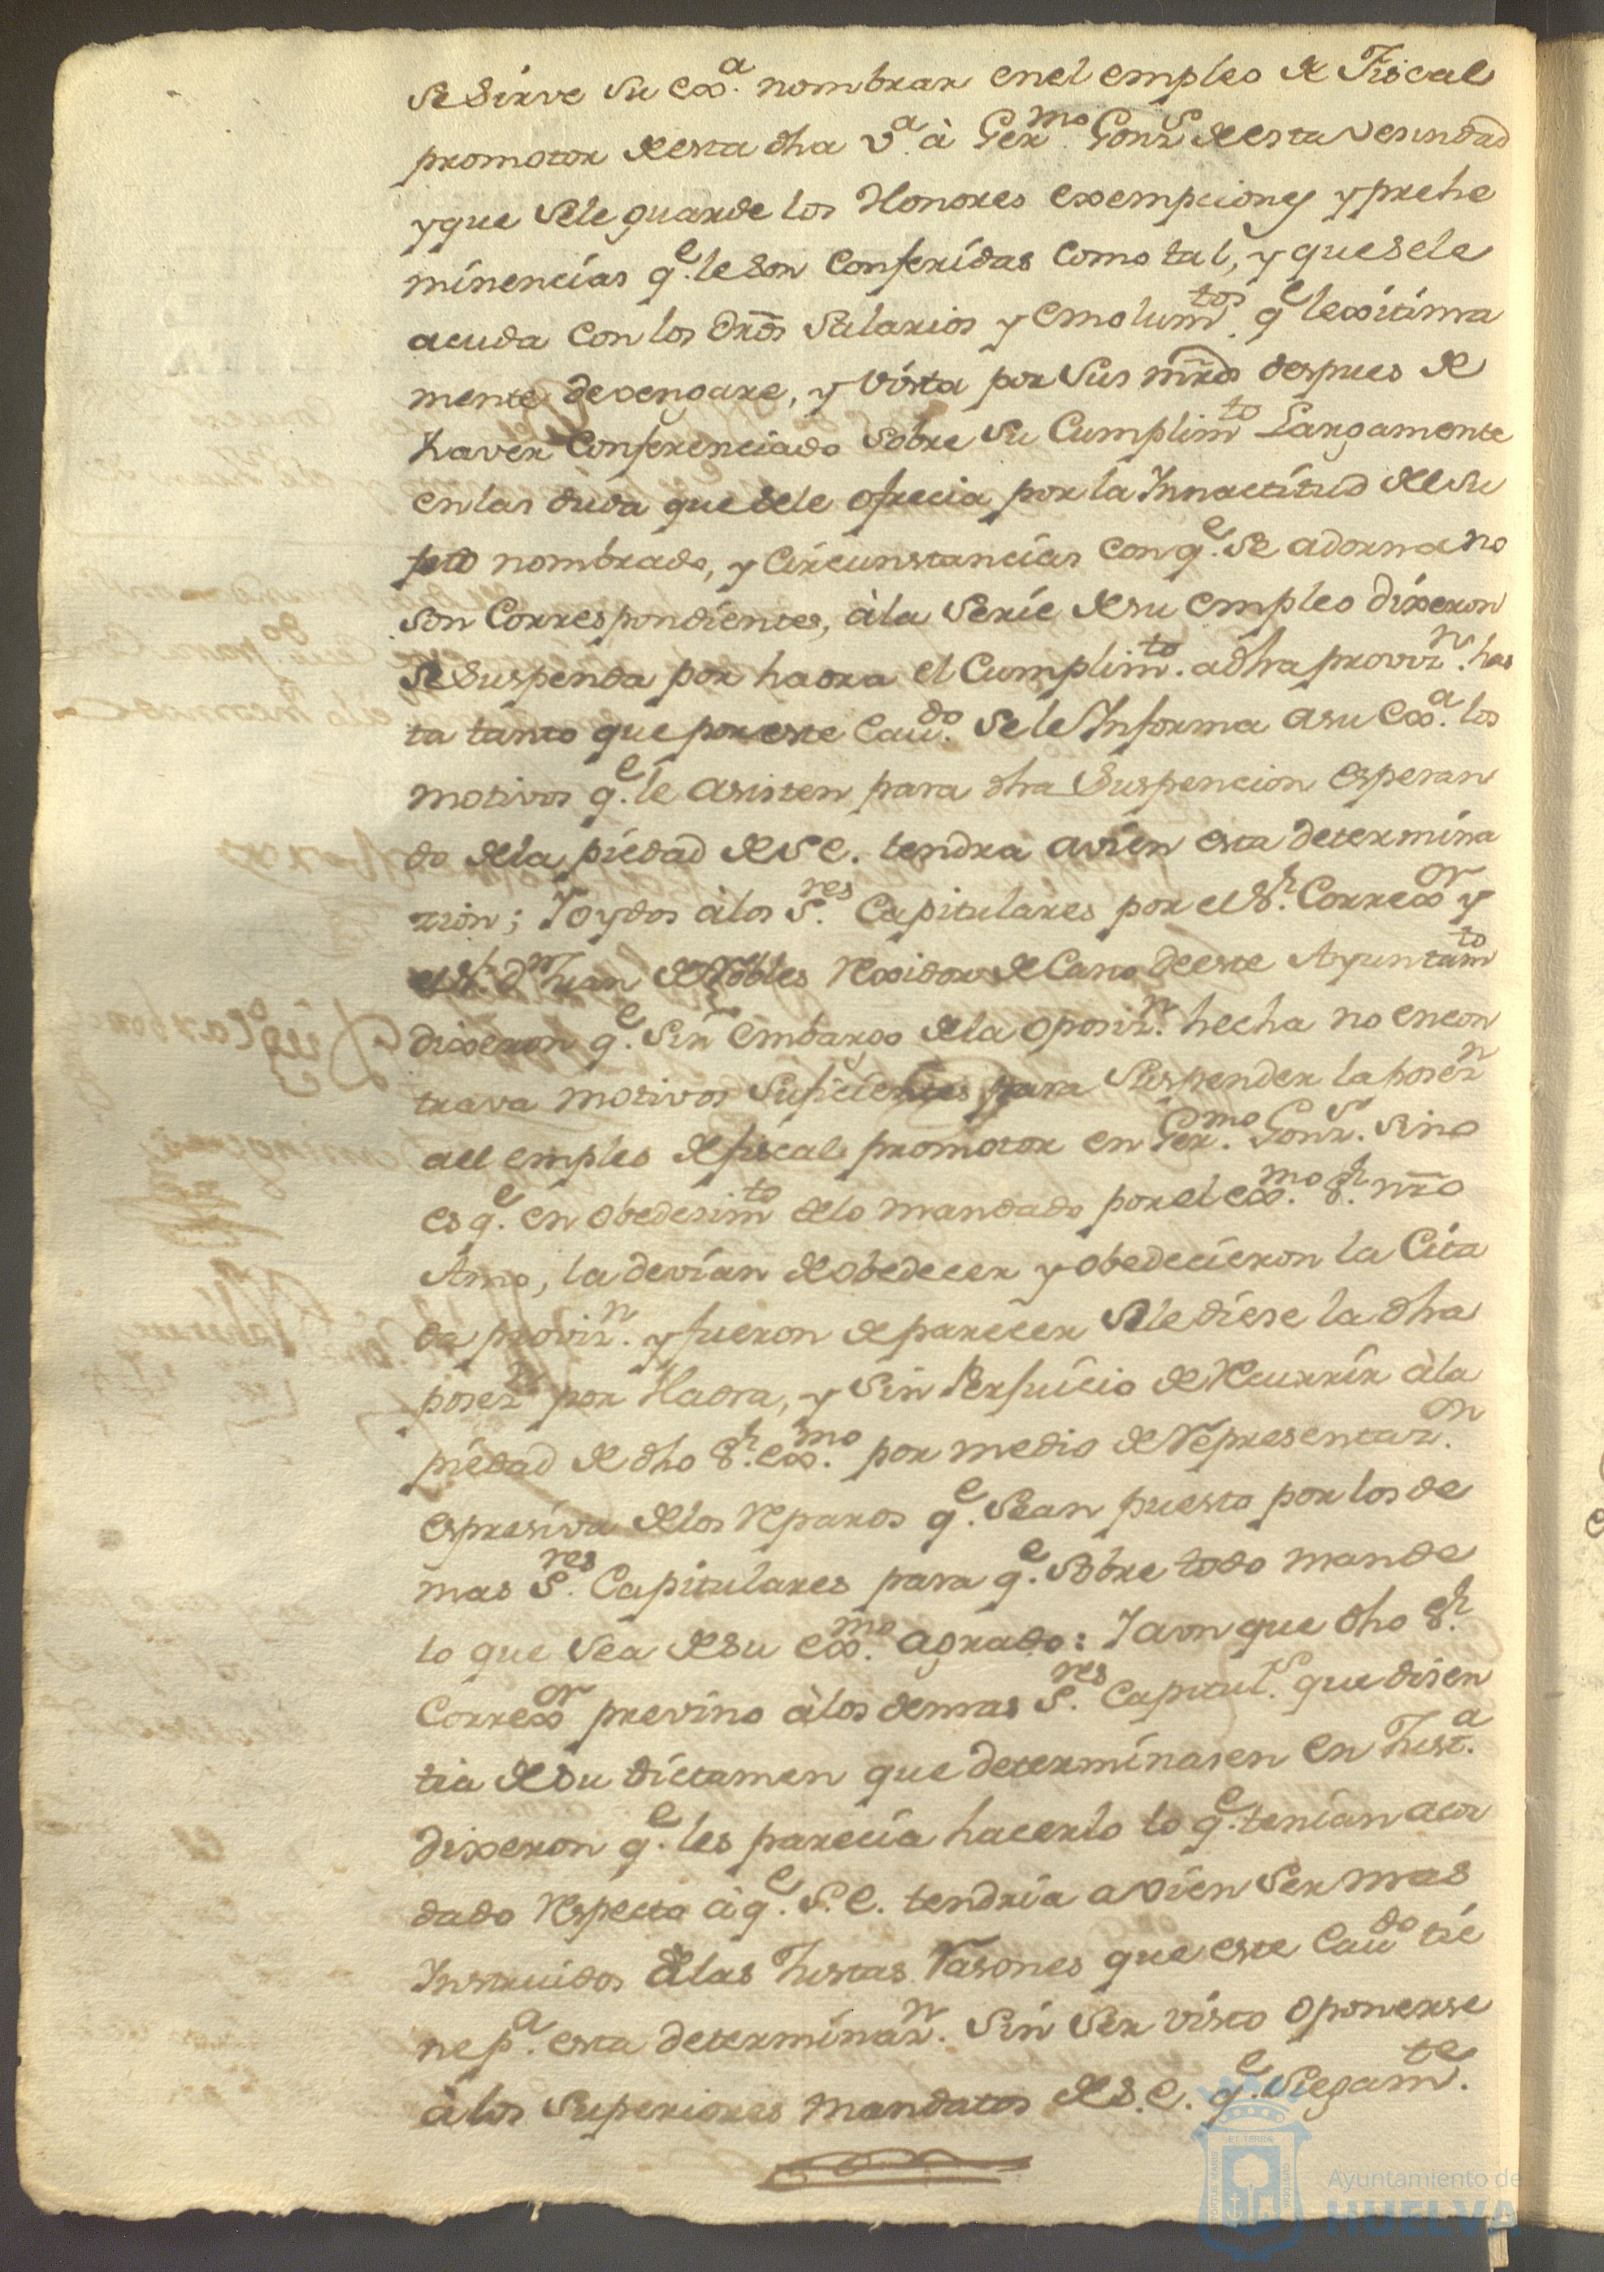 se sirve su exª. nombrar en el empleo de Fiscal
promotor de esta dha vª. à Germo. Gonz.s de esta vesindad
y que se le guarde los Honores exempciones y prehe
minencias qe. le son conferidas como tal, y que se le
acuda con los dros Salarios y emolumtos. qe lexitima
mente devengare, y vista por sus mrds despues de
haver conferenciado sobre su Cumplimto Largamente
en las duda que se le ofrecia por la Innactitud del su
nombrado, y circunstancias con qe. se adorna no
son Correspondientes, à la serie de su empleo dixeron
se suspenda por haora el Cumplimto. a dha provizn. has
ta tanto que por este Cavdo. se le Informa a su exª. los
motivos qe. le asisten para dha Suspencion esperan
do de la piedad de S E. tendra avien esta determina
zion; Y oydos à los S.res Capitulares por el Sr. Correxor y
el Sr. Dn Juan de Robles Rexidor Decano de este Ayuntamto
dixeron qe. sin embargo de la oposizn. hecha no encon
trava motivos suficientes para suspender la posezn
del empleo de fiscal promotor en Germo. Gonz.s sino
es qe. en obedesimto de lo mandado por el exmo. Sr. nro
Amo, la devian de obedecer y obedecieron la Cita
da provizn. y fueron de parecer se le diese la dha
posezn por Haora, y sin Perjuicio de Recurrir à la
piedad de dho Sr. exmo. por medio de Representazon.
espresiva de los Reparos qe. sean puesto por los de
mas S.res Capitulares para qe. sobre todo mande
lo que sea de su exmo. agrado: Y aon que dho Sr.
Correxor previno à los demas S.res Capitul.s que disen
tia de su dictamen que determinasen en Justª.
dixeron qe. les parecia hacerlo lo qe. tenian acor
dado respecto à qe. S. E. tendria avien ser mas
Instruidos de las Justas Rasones que este Cavdo tie
ne pª. esta determinazn. sin ser visto oponerse
à los superiores mandatos de S. E. qe. siegamte.
ET TERRÆ
PORTUS MARIS
CUSTODIA
Ayuntamiento de
HUELVA